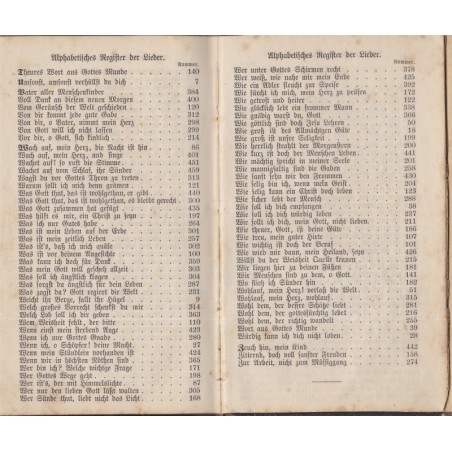 Alphabetisches Register der Lieder.
Nummer.
Theures Wort aus Gottes Munde 140
Umsonst, umsonst verhüllst du dich 7
Vater aller Menschenkinder 384
Voll Dank an diesem neuen Morgen 400
Vom Geräusch der Welt geschieden 120
Von dir kommt jede gute Gabe 312
Von dir, o Vater, nimmt mein Herz 298
Von Gott will ich nicht lassen 299
Vor dir, o Gott, sich kindlich 214
Wach auf, mein Herz, die Nacht ist hin 86
Wach auf, mein Herz, und singe 401
Wachet auf! so ruft die Stimme 431
Wachet auf vom Schlaf, ihr Sünder 459
Wagst du vor Gottes Thron zu treten 313
Warum sollt ich mich denn grämen 121
Was Gott thut, das ist wohlgethan, er 440
Was Gott thut, das ist wohlgethan, es bleibt gerecht 300
Was Gott zusammen hat gefügt 435
Was hilft es mir, ein Christ zu seyn 197
Was ich nur Gutes habe 264
Was ist mein Leben auf der Erde 301
Was ist mein zeitlich Leben 257
Was ist's, daß ich mich quäle 302
Was ist vor deinem Angesichte 100
Was kann ich doch für Dank 359
Was mein Gott will gescheh allzeit 303
Was soll ich ängstlich klagen 304
Was sorgst du ängstlich für dein Leben 287
Was zagst du? Gott regiert die Welt 31
Weicht ihr Berge, fallt ihr Hügel 9
Welch großes Vorrecht schenkst du mir 314
Welch Lob soll ich dir geben 363
Wem Weisheit fehlt, der bitte 110
Wenn einst mein sterbend Auge 423
Wenn ich nur Gottes Gnade 280
Wenn ich, o Schöpfer! deine Macht 27
Wenn mein Stündlein vorhanden ist 424
Wenn wir in höchsten Nöthen sind 365
Wer bin ich? Welche wichtge Frage 171
Wer Gottes Wege geht 198
Wer ist's, der mit Himmelslichte 87
Wer nur den lieben Gott läßt walten 305
Wer Sünde thut, liebt nicht das Licht 168
Alphabetisches Register der Lieder.
Nummer.
Wer unter Gottes Schirmen recht 378
Wer weiß, wie nahe mir mein Ende 425
Wie ein Adler fleucht zur Speise 392
Wie fürcht ich mich, mein Herz zu preisen 172
Wie getrost und heiter 122
Wie glücklich lebt ein frommer Mann 38
Wie gnädig warst du, Gott 366
Wie göttlich sind doch Jesu Lehren 50
Wie groß ist des Allmächtigen Güte 18
Wie groß ist unsre Seligkeit 199
Wie herrlich strahlt der Morgenstern 200
Wie kurz ist doch der Menschen Leben 441
Wie mächtig spricht in meiner Seele 201
Wie mannigfaltig sind die Gaben 258
Wie sanft sehn wir den Frommen 430
Wie selig bin ich, wenn mein Geist 204
Wie selig kann ein Christ doch leben 123
Wie sicher lebt der Mensch 288
Wie soll ich dich empfangen 58
Wie soll ich dich würdig loben 237
Wie sollt ich dich, mein Gott, nicht lieben 211
Wie theuer, Gott, ist deine Güte 186
Wie treu, mein guter Hirte 107
Wie wichtig ist doch der Beruf 101
Wie wird mir dann, mein Heiland, seyn 426
Willst du der Weisheit Quelle kennen 215
Wir liegen hier zu deinen Füßen 181
Wir Menschen sind zu dem, o Gott 141
Wo flieh ich Sünder hin 182
Wohlauf, mein Herz, verlaß die Welt 51
Wohlauf, mein Herz, wohlauf 315
Wohl dem, der beßre Schätze liebt 281
Wohl dem, der gottesfürchtig lebet 216
Wohl dem, der richtig wandelt 255
Wort aus Gottes Munde 39
Würdig kann ich dich nicht loben 28
Zeuch hin, mein Kind 442
Zitternd, doch voll sanfter Freuden 156
Zur Arbeit, nicht zum Müssiggang 274